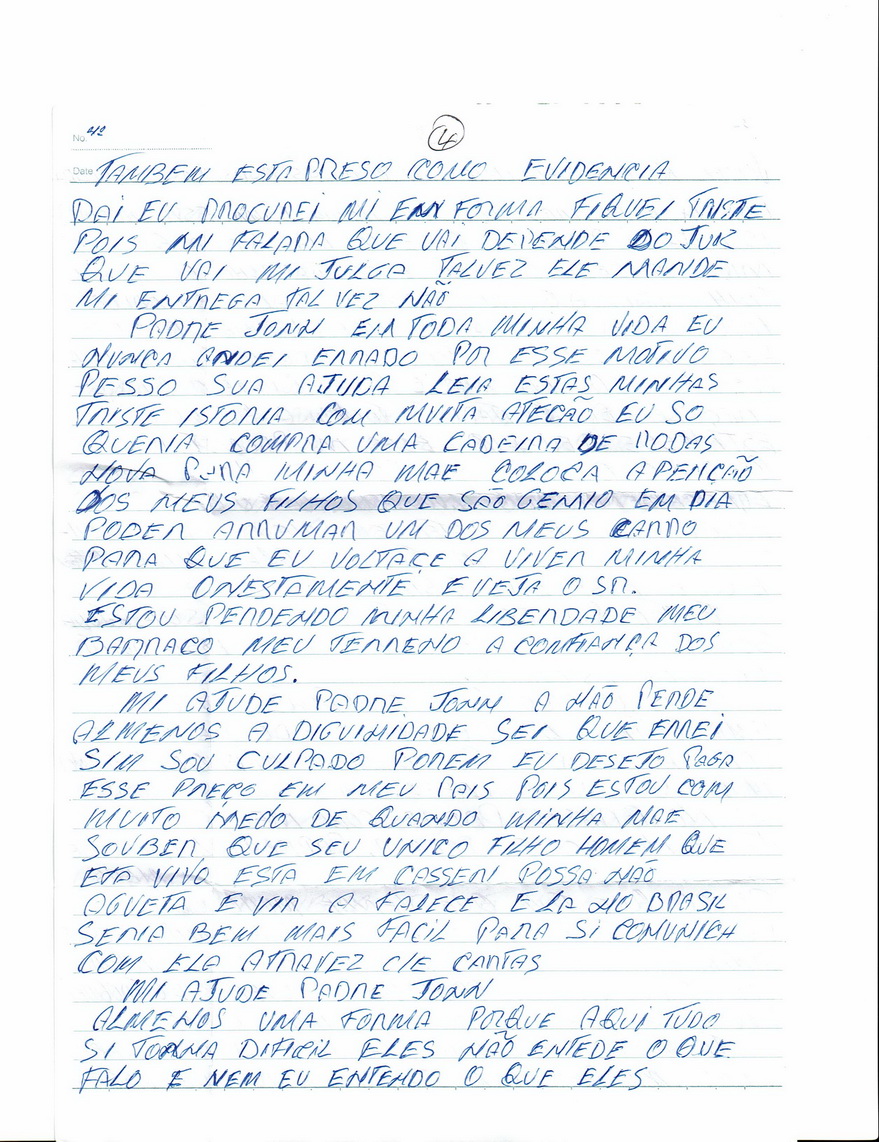 No. 42
4
Date TAMBEM ESTA PRESO COMO EVIDENCIA
DAI EU PROCUREI MI ENFORMA FIQUEI TRISTE
POIS MI FALARA QUE VAI DEPENDE DO JUIZ
QUE VAI MI JULGA TALVEZ ELE MANDE
MI ENTREGA TALVEZ NÃO
PADRE JONN EM TODA MINHA VIDA EU
NUNCA ANDEI ERRADO POR ESSE MOTIVO
PESSO SUA AJUDA LEIA ESTAS MINHAS
TRISTE ISTORIA COM MUITA ATECÃO EU SO
QUERIA COMPRA UMA CADEIRA DE RODAS
NOVA PARA MINHA MAE COLOCA A PENÇÃO
DOS MEUS FILHOS QUE SÃO GENIO EM DIA
PODER ARRUMAR UM DOS MEUS CARRO
PARA QUE EU VOLTAÇE A VIVER MINHA
VIDA ONESTAMENTE E VEJA O SR.
ESTOU PERDENDO MINHA LIBERDADE MEU
BARRACO MEU TERRENO A CONFIANÇA DOS
MEUS FILHOS.
MI AJUDE PADRE JONN A NÃO PERDE
ALMENOS A DIGUINIDADE SEI QUE ERREI
SIM SOU CULPADO POREM EU DESEJO PAGA
ESSE PREÇO EM MEU PAIS POIS ESTOU COM
MUITO MEDO DE QUANDO MINHA MAE
SOUBER QUE SEU UNICO FILHO HOMEM QUE
ETA VIVO ESTA EM CASSERI POSSA NÃO
AGUETA E VIR A FALECE E LA NO BRASIL
SERIA BEM MAIS FACIL PARA SI COMUNICA
COM ELA ATRAVEZ DE CARTAS
MI AJUDE PADRE JONN
ALMENOS UMA FORMA PORQUE AQUI TUDO
SI TORNA DIFICIL ELES NÃO ENTEDE O QUE
FALO E NEM EU ENTENDO O QUE ELES